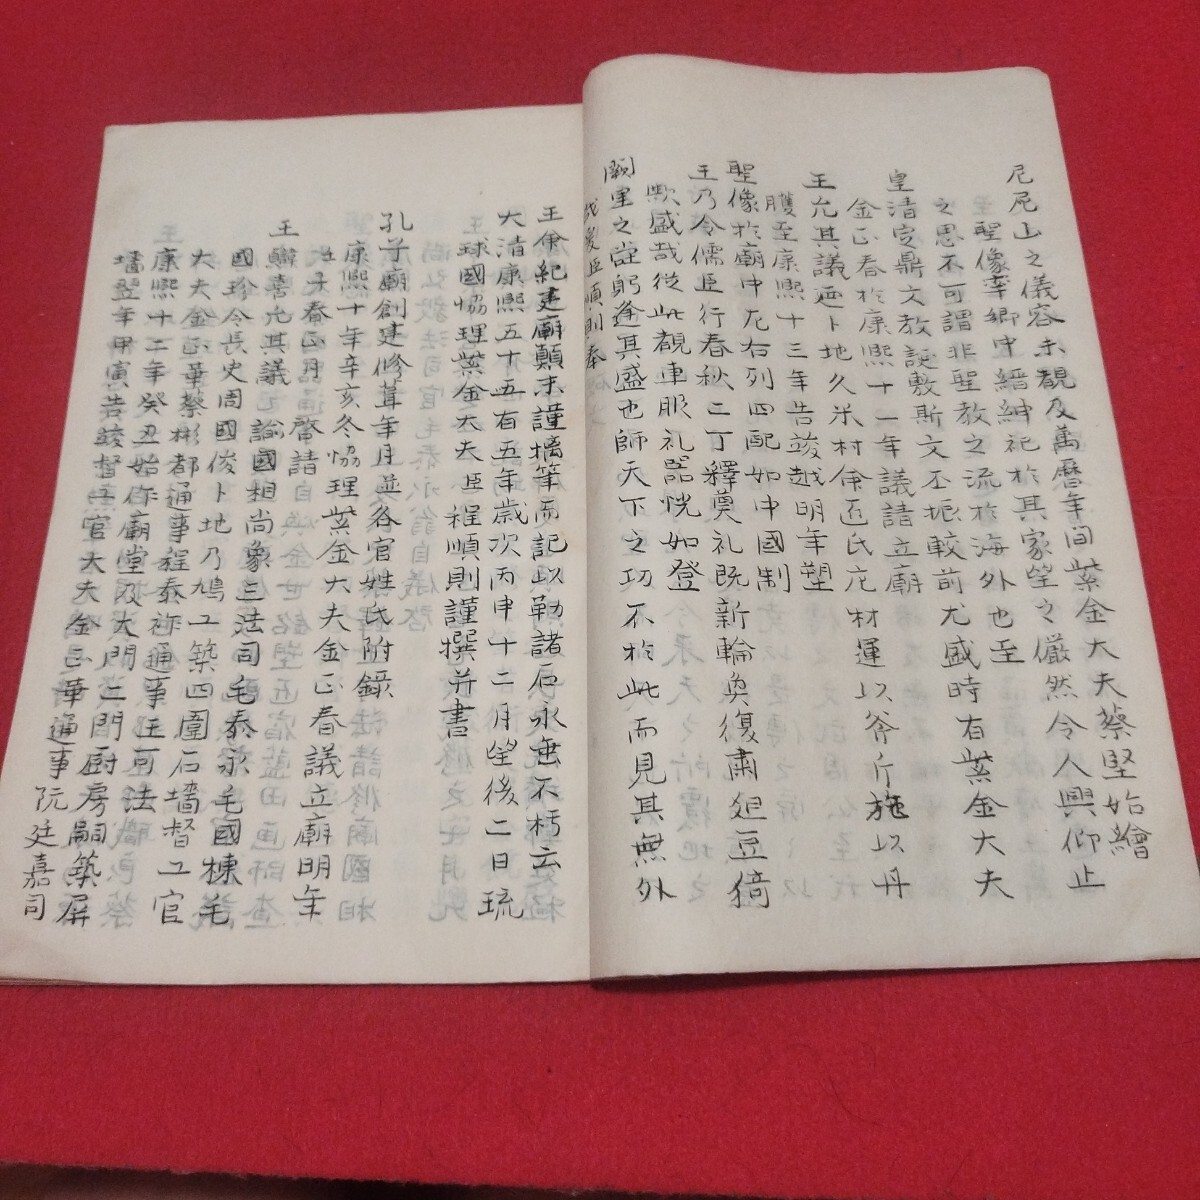 尼尼山之儀容未覩及萬曆年間紫金大夫蔡堅始繪
聖像率鄉中縉紳祀於其家望之儼然令人興仰止
之思不可謂非聖教之流於海外也至
皇清定鼎文教誕敷斯文丕振較前尤盛時有紫金大夫
金正春於康熙十一年議請立廟
王允其議廼卜地久米村命匠氏庀材運以斧斤施以丹
雘至康熙十三年告竣越明年塑
聖像於廟中左右列四配如中國制
王乃令儒臣行春秋二丁釋奠礼既新輪奐復肅俎豆猗
歟盛哉從此觀車服礼器恍如登
闕里之堂躬逢其盛也師天下之功不於此而見其無外
哉爰臣順則奉
王命紀建廟顛末謹摛筆而記以勒諸石永垂不朽云
大清康熙五十五有五年歲次丙申十二月望後二日琉
球國協理紫金大夫臣程順則謹撰并書
孔子廟創建修葺年月並各官姓氏附錄
康熙十年辛亥冬協理紫金大夫金正春議立廟明年
壬子春正月啓請
王鑒喜允其議元諭國相尚象三法司毛泰永毛國棟毛
國珍令長史周國俊卜地乃鳩工築四圍石墻督工官
大夫金正華蔡彬都通事程泰祚通事王可法
康熙十二年癸丑始作廟堂及大門二門厨房嗣築屏
墻翌年甲寅告竣督工官大夫金正華通事阮廷嘉司